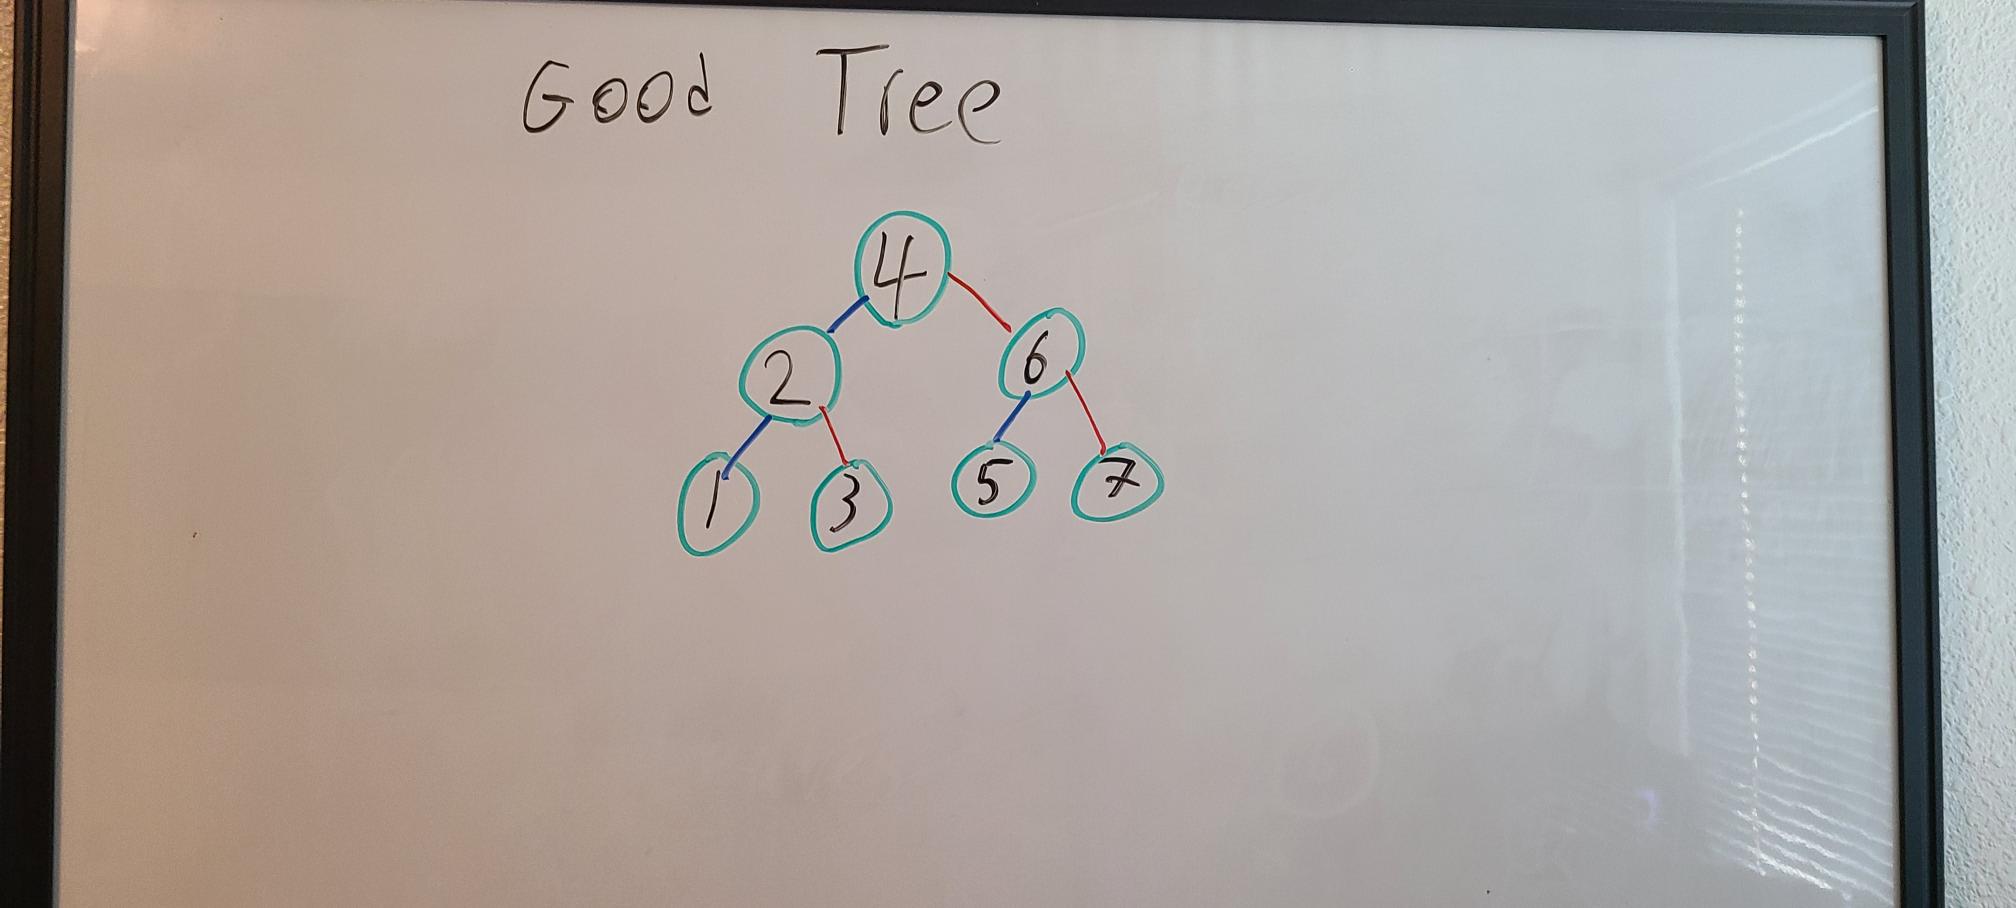 Good Tree
4
2 6
1 3 5 7